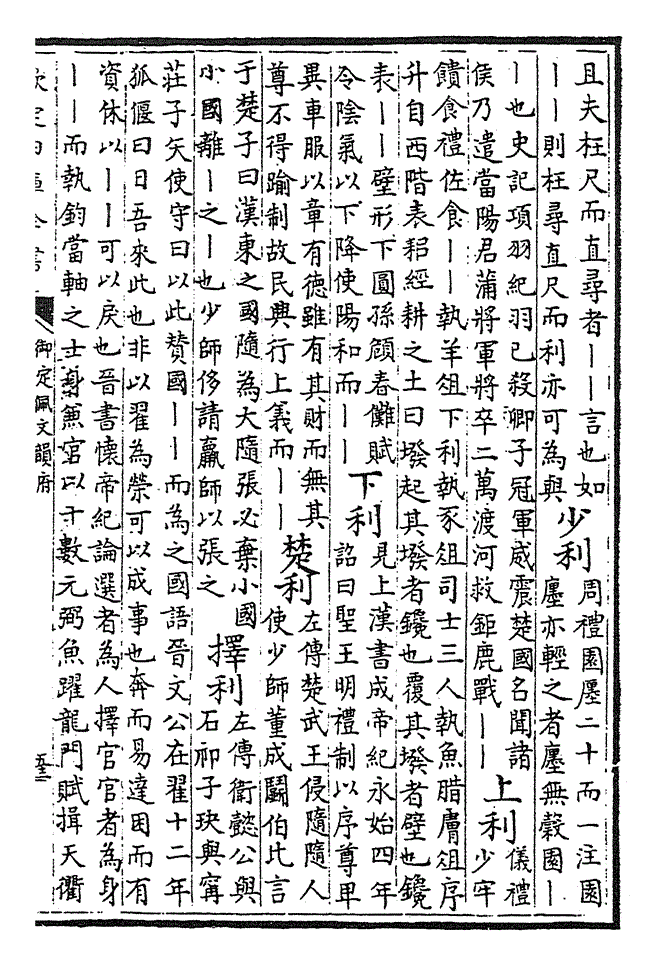 且夫枉尺而直尋者丨丨言也如
丨丨則枉尋直尺而利亦可為與
少利
周禮園廛二十而一注園
廛亦輕之者廛無穀園丨
丨也史記項羽紀羽已殺卿子冠軍威震楚國名聞諸
侯乃遣當陽君蒲將軍將卒二萬渡河救鉅鹿戰丨丨
上利
儀禮
少牢
饋食禮佐食丨丨執羊俎下利執豕俎司士三人執魚腊膚俎序
升自西階耒耜經耕之土曰墢起其墢者鑱也覆其墢者壁也鑱
表丨丨壁形下圓孫頠春儺賦
令陰氣以下降使陽和而丨丨
下利
見上漢書成帝紀永始四年
詔曰聖王明禮制以序尊卑
異車服以章有德雖有其財而無其
尊不得踰制故民興行上義而丨丨
楚利
左傳楚武王侵隨隨人
使少師董成鬭伯比言
于楚子曰漢東之國隨為大隨張必棄小國
小國離丨之丨也少師侈請羸師以張之
擇利
左傳衛懿公與
石祁子玦與甯
莊子矢使守曰以此贊國丨丨而為之國語晉文公在翟十二年
狐偃曰日吾來此也非以翟為榮可以成事也奔而易達困而有
資休以丨丨可以戾也晉書懷帝紀論選者為人擇官官者為身
丨丨而執鈞當軸之士身兼官以十數元弼魚躍龍門賦揖天衢
欽定四庫全書
御定佩文韻府